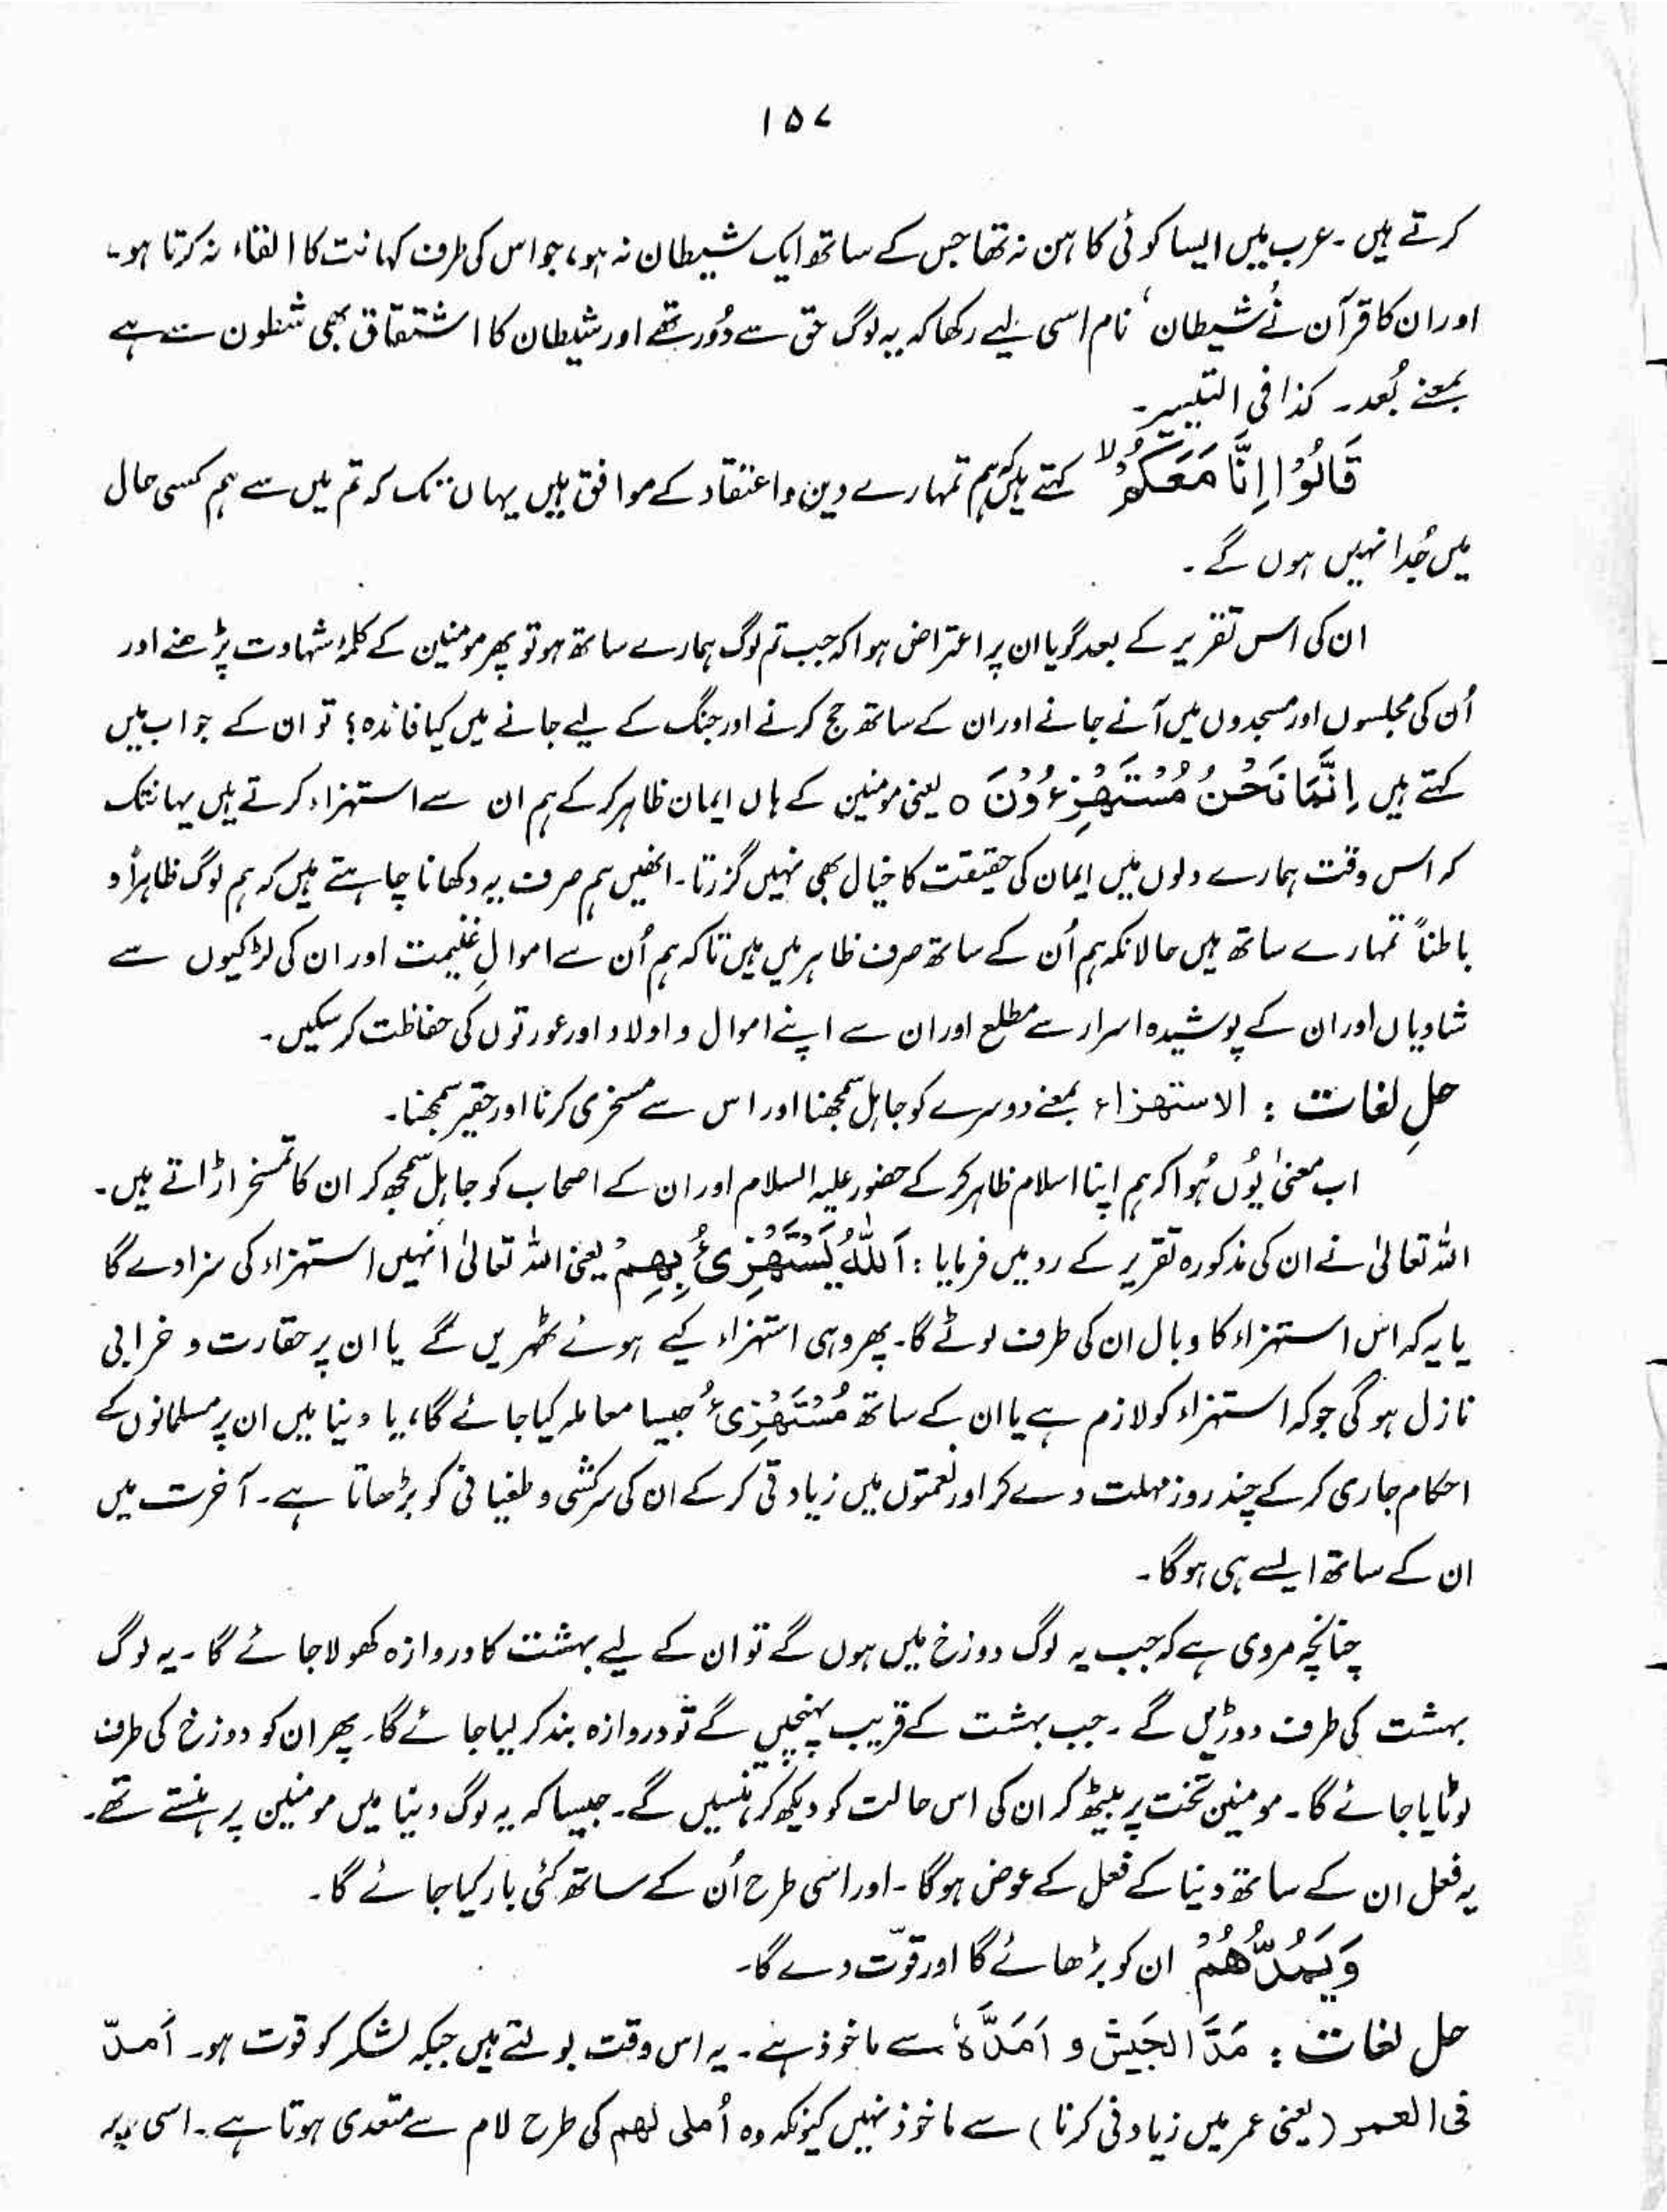 ۱۵۷
کرتے ہیں ۔ عرب میں ایسا کوئی کاہن نہ تھا جس کے ساتھ ایک شیطان نہ ہو، جو اس کی طرف کہانت کا القاء نہ کرتا ہو۔
اور ان کا قرآن نے شیطان ' نام اسی لیے رکھا کہ یہ لوگ حق سے دُور تھے اور شیطان کا اشتقاق بھی شطون سے ہے
بمعنے بُعد ۔ کذا فی التیسیر ۔
قَالُوْا اِنَّا مَعَكُمْ لا کہتے ہیں کہ ہم تمہارے دین و اعتقاد کے موافق ہیں یہاں تک کہ تم میں سے ہم کسی حال
میں جُدا نہیں ہوں گے ۔
ان کی اس تقریر کے بعد گویا ان پر اعتراض ہوا کہ جب تم لوگ ہمارے ساتھ ہو تو پھر مومنین کے کلمۂ شہادت پڑھنے اور
اُن کی مجلسوں اور مسجدوں میں آنے جانے اور ان کے ساتھ حج کرنے اور جنگ کے لیے جانے میں کیا فائدہ؟ تو ان کے جواب میں
کہتے ہیں اِنَّمَا نَحْنُ مُسْتَهْزِءُوْنَ ○ یعنی مومنین کے ہاں ایمان ظاہر کر کے ہم ان سے استہزاء کرتے ہیں یہانتک
کہ اس وقت ہمارے دلوں میں ایمان کی حقیقت کا خیال بھی نہیں گزرتا ۔ انھیں ہم صرف یہ دکھانا چاہتے ہیں کہ ہم لوگ ظاہراً و
باطناً تمہارے ساتھ ہیں حالانکہ ہم اُن کے ساتھ صرف ظاہر میں ہیں تاکہ ہم اُن سے اموالِ غنیمت اور ان کی لڑکیوں سے
شادیاں اور ان کے پوشیدہ اسرار سے مطلع اور ان سے اپنے اموال و اولاد اور عورتوں کی حفاظت کر سکیں ۔
حلِ لغات : الاستھزاء بمعنے دوسرے کو جاہل سمجھنا اور اس سے مسخری کرنا اور حقیر سمجھنا ۔
اب معنیٰ یُوں ہُوا کہ ہم اپنا اسلام ظاہر کر کے حضور علیہ السلام اور ان کے اصحاب کو جاہل سمجھ کر ان کا تمسخر اڑاتے ہیں ۔
اللہ تعالیٰ نے ان کی مذکورہ تقریر کے رد میں فرمایا : اَللّٰهُ يَسْتَهْزِئُ بِهِمْ یعنی اللہ تعالیٰ انہیں استہزاء کی سزا دے گا
یا یہ کہ اس استہزاء کا وبال ان کی طرف لوٹے گا ۔ پھر وہی استہزاء کیے ہوئے ٹھہریں گے یا ان پر حقارت و خرابی
نازل ہوگی جو کہ استہزاء کو لازم ہے یا ان کے ساتھ مُسْتَهْزِئُ جیسا معاملہ کیا جائے گا، یا دنیا میں ان پر مسلمانوں کے
احکام جاری کر کے چند روز مہلت دے کر اور نعمتوں میں زیادتی کر کے ان کی سرکشی و طغیانی کو بڑھاتا ہے ۔ آخرت میں
ان کے ساتھ ایسے ہی ہوگا ۔
چنانچہ مروی ہے کہ جب یہ لوگ دوزخ میں ہوں گے تو ان کے لیے بہشت کا دروازہ کھولا جائے گا ۔ یہ لوگ
بہشت کی طرف دوڑیں گے ۔ جب بہشت کے قریب پہنچیں گے تو دروازہ بند کر لیا جائے گا ۔ پھر ان کو دوزخ کی طرف
لوٹایا جائے گا ۔ مومنین تخت پر بیٹھ کر ان کی اس حالت کو دیکھ کر ہنسیں گے ۔ جیسا کہ یہ لوگ دنیا میں مومنین پر ہنستے تھے ۔
یہ فعل ان کے ساتھ دنیا کے فعل کے عوض ہوگا ۔ اور اسی طرح اُن کے ساتھ کئی بار کیا جائے گا ۔
وَيَمُدُّهُمْ ان کو بڑھائے گا اور قوّت دے گا ۔
حل لغات : مَدَّ الجَیش و اَمَدَّہٗ سے ماخوذ ہے ۔ یہ اس وقت بولتے ہیں جبکہ لشکر کو قوت ہو ۔ اَمدّ
فی العمر (یعنی عمر میں زیادتی کرنا) سے ماخوذ نہیں کیونکہ وہ اُملی لھم کی طرح لام سے متعدی ہوتا ہے ۔ اسی پر